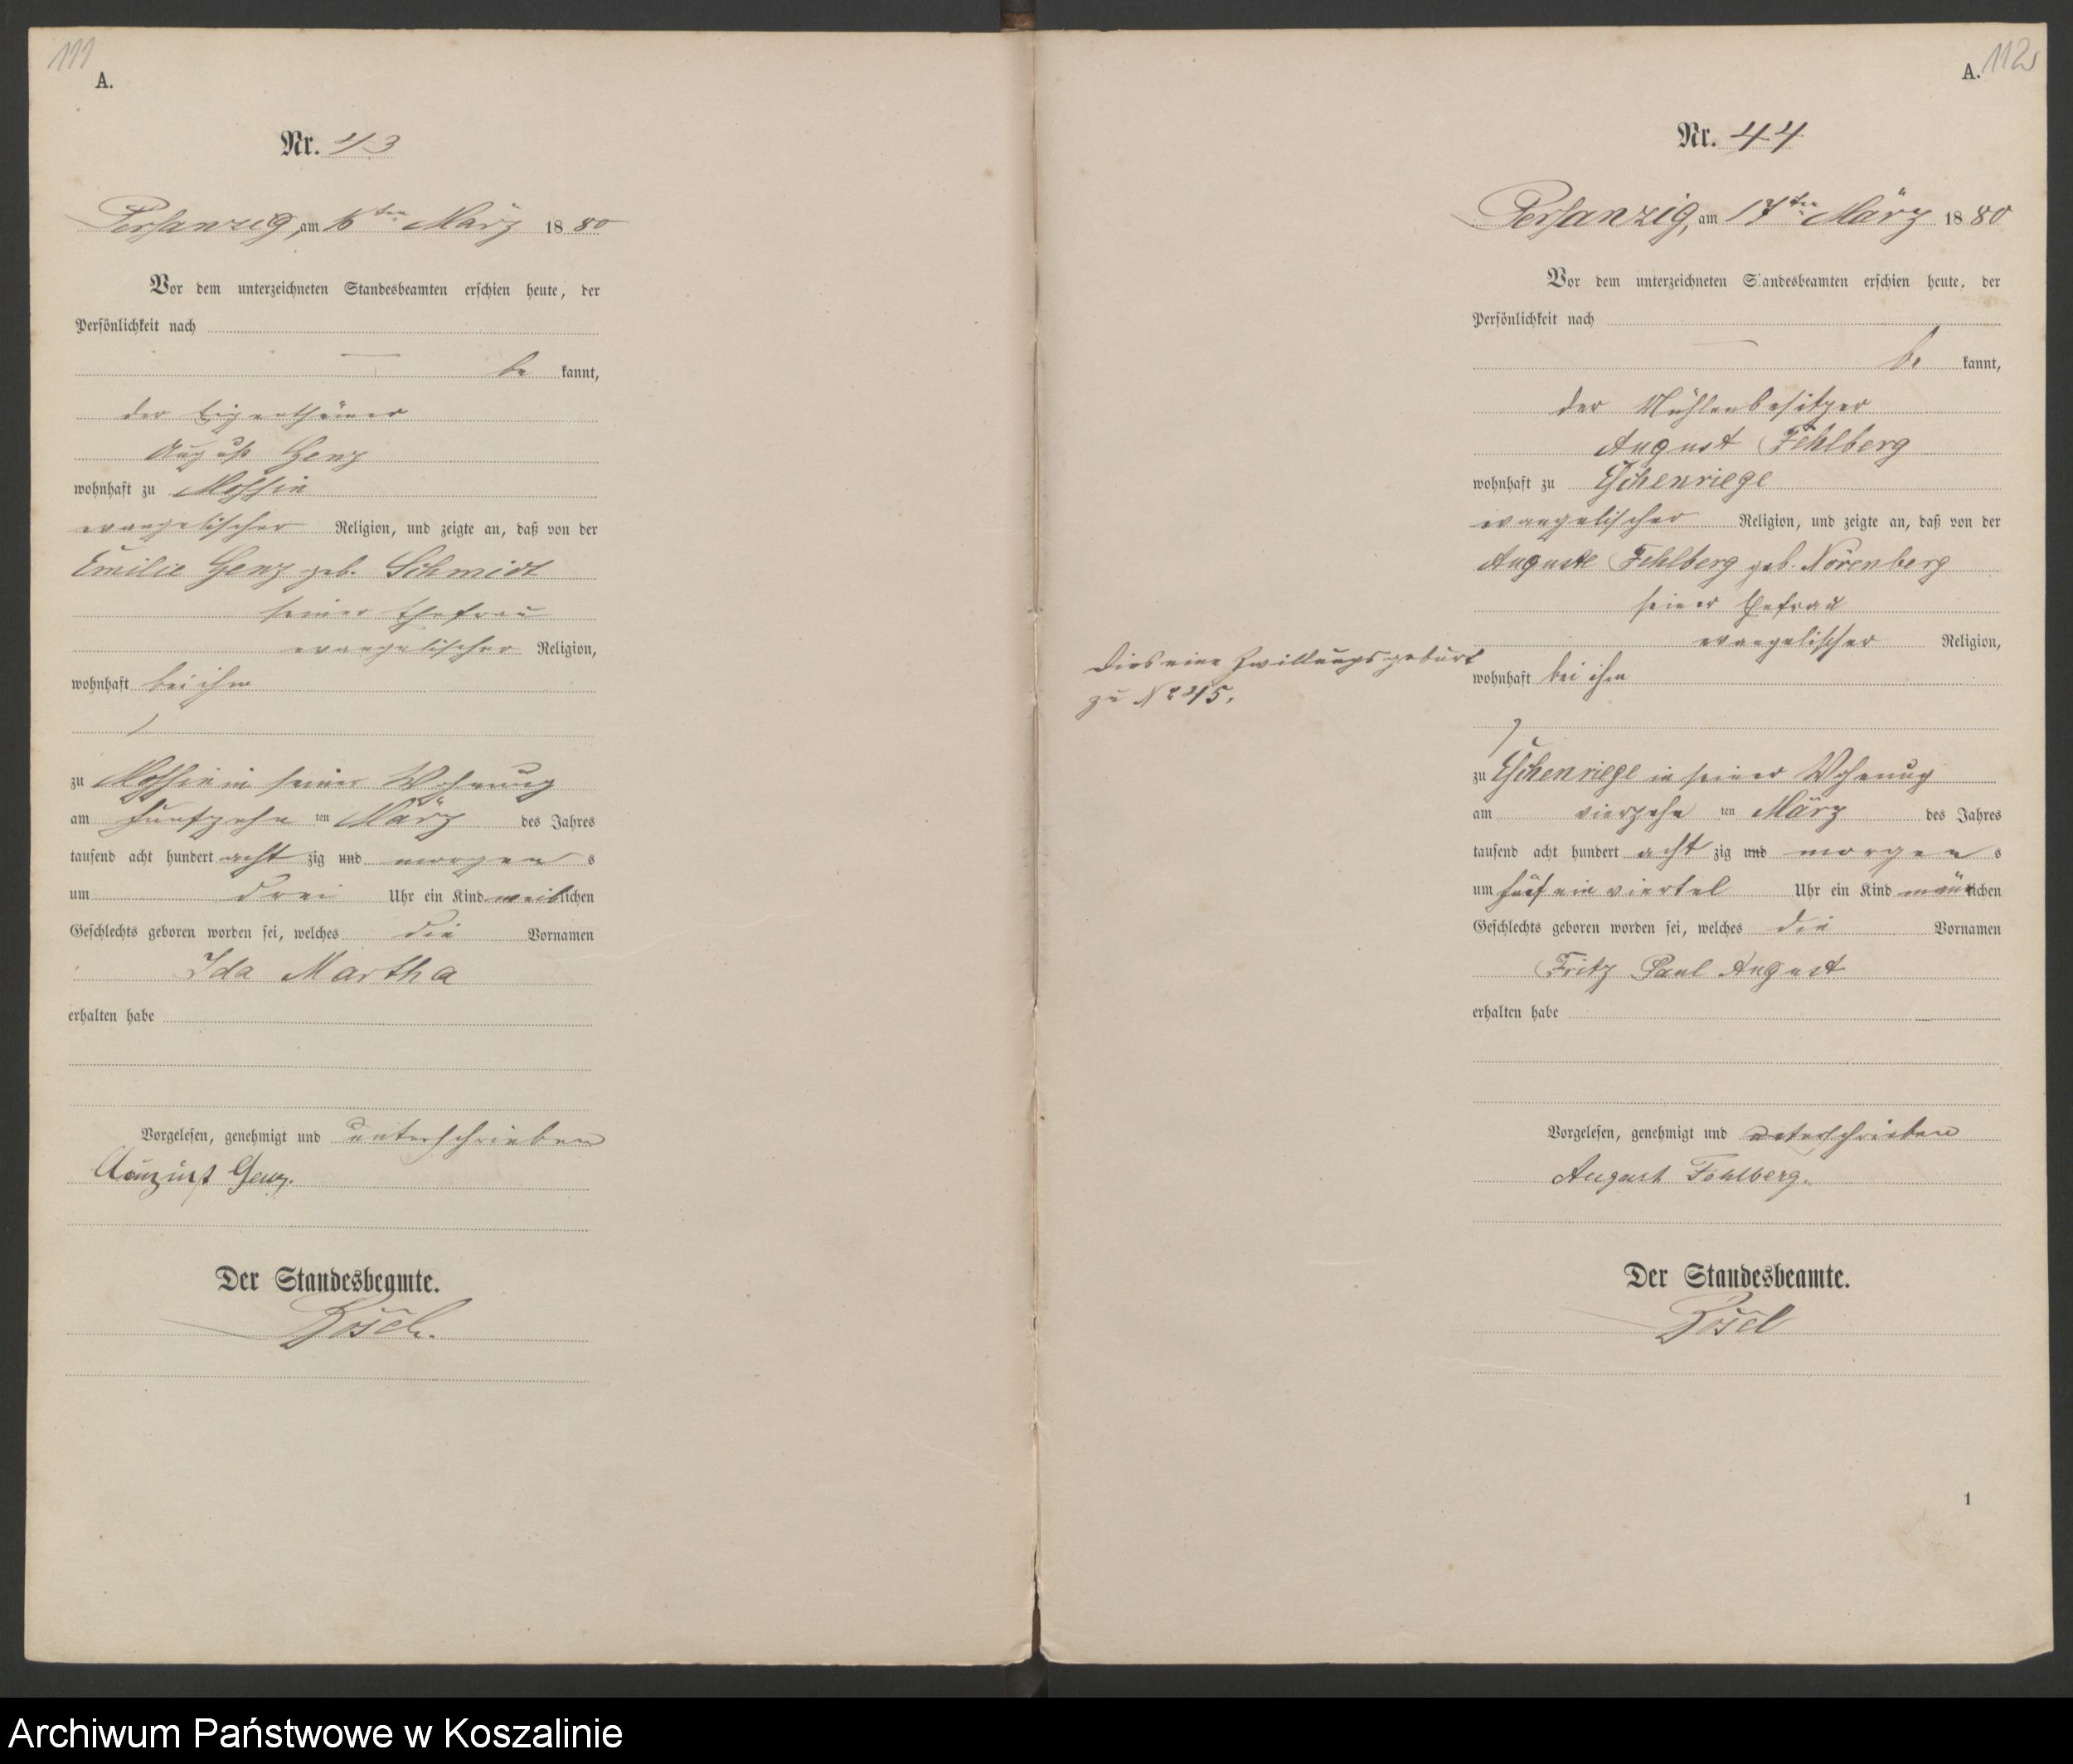 111
A.
Nr. 43
Persanzig, am 16ten März 1880
Vor dem unterzeichneten Standesbeamten erschien heute, der
Persönlichkeit nach
be kannt,
der Eigenthümer
August Genz
wohnhaft zu Mossin
evangelischer Religion, und zeigte an, daß von der
Emilie Genz geb. Schmidt
seiner Ehefrau
evangelischer Religion,
wohnhaft bei ihm
zu Mossin in seiner Wohnung
am fünfzehn ten März des Jahres
tausend acht hundert acht zig und morgen s
um drei Uhr ein Kind weiblichen
Geschlechts geboren worden sei, welches die Vornamen
Ida Martha
erhalten habe
Vorgelesen, genehmigt und unterschrieben
August Genz.
Der Standesbeamte.
A. 112
Nr. 44
Persanzig, am 17ten März 1880
Vor dem unterzeichneten Standesbeamten erschien heute, der
Persönlichkeit nach
be kannt,
der Mühlenbesitzer
August Fehlberg
wohnhaft zu Eschenriege
evangelischer Religion, und zeigte an, daß von der
Auguste Fehlberg geb. Nörenberg
seiner Ehefrau
evangelischer Religion,
Dies eine Zwillingsgeburt
zu No 45.
wohnhaft bei ihm
zu Eschenriege in seiner Wohnung
am vierzehn ten März des Jahres
tausend acht hundert acht zig und morgen s
um fünf ein viertel Uhr ein Kind männlichen
Geschlechts geboren worden sei, welches die Vornamen
Fritz Paul August
erhalten habe
Vorgelesen, genehmigt und unterschrieben
August Fehlberg.
Der Standesbeamte.
1
Archiwum Państwowe w Koszalinie